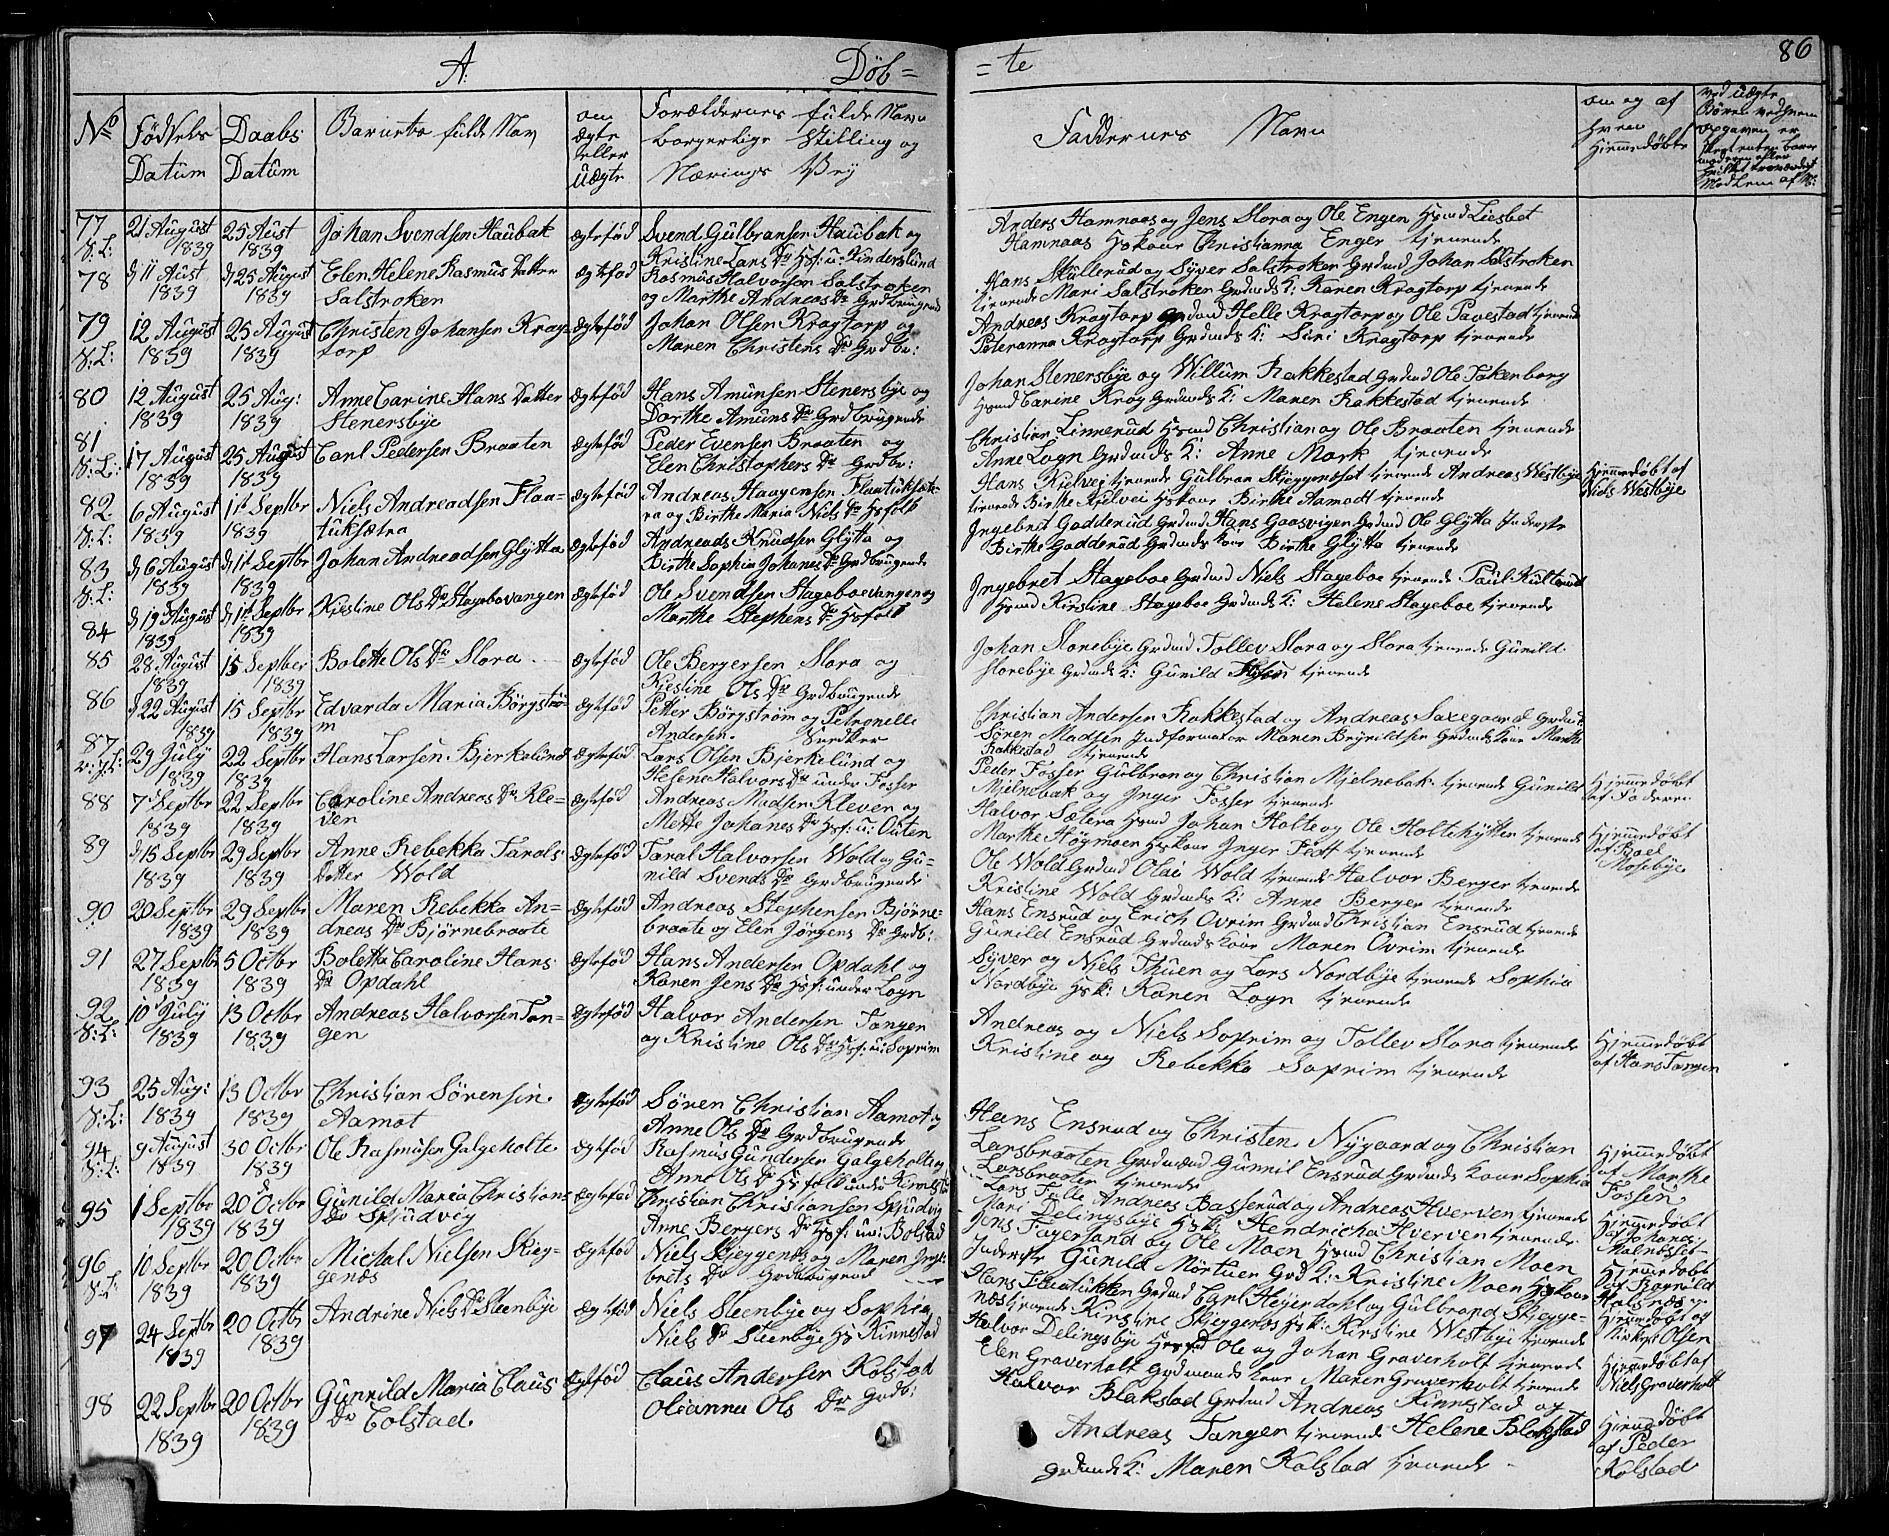 A: Döb=
=te 86
No Födsels Datum Daabs Datum Barnets fulde Navn om ægte eller uægte Forældrenes fulde Navn borgerlige Stilling og Nærings Vej
Faddernes Navn om og af hvem Hjemmedöbte
77 21 August 1839 25 Aust 1839 Johan Svendsen Haubak ægtefød Svend Gulbransen Haubak og
Kristine Lars Dr Hsf: u: Kinderslund
Anders Hamnaas og Jens Slora og Ole Engen Hsmd Liesbet
Hamnaas Hskone Christianna Enger tjenende
78 d 11 Aust 1839 d 25 August 1839 Elen Helene Rasmus Datter
Salstroken ægtefød Rasmus Halvorsen Salstroken
og Marthe Andreas Dr Grdbrugende
Hans Skullerud og Syver Salstroken Grdmd Johan Salstroken
tjenende Mari Salstroken Grdmds K: Karen Kragtorp tjenende
79 12 August 1839 25 August 1839 Christen Johansen Krag=
torp ægtefød Johan Olsen Kragtorp og
Maren Christens Dr Grdbr:
Andreas Kragtorp Grdmd Helle Kragtorp og Ole Pavestad tjenende
Peteranna Kragtorp Grdmds K: Siri Kragtorp tjenende
80 12 August 1839 25 Aug: 1839 Anne Carine Hans Datter
Stenersbye ægtefød Hans Amunsen Stenersbye og
Dorthe Amuns Dr Grdbrugende
Johan Stenersbye og Willum Rakkestad Grdmd Ole Takenborg
Hsmd Carine Krog Grdmds K: Maren Rakkestad tjenende
81 17 August 1839 25 August 1839 Carl Pedersen Braaten ægtefød Peder Evensen Braaten og
Elen Christophers Dr Grdbr:
Christian Linnerud Hsmd Christian og Ole Braaten tjenende
Anne Logn Grdmds K: Anne Mork tjenende
82 6 August 1839 1st Septbr 1839 Niels Andreadsen Flaa=
tuksætra ægtefød Andreas Haagensen Flaatuksæt=
ra og Birthe Maria Niels Dr Hsfolk
Hans Kjelvei tjenende Gulbran Skjeggenæset tjenende Andreas Westbye
tjenende Birthe Kjelvei Hskone Birthe Aamodt tjenende
Hjemmedöbt af Niels Westbye
83 d 6 August 1839 d 1st Septbr 1839 Johan Andreadsen Glytta ægtefød Andreads Knudsen Glytta og
Birthe Sophia Johanes Dr Grdbrugende
Ingebret Gadderud Grdmd Hans Gaasvigen Grdmd Ole Glytta Inderste
Birthe Gadderud Grdmds Kone Birthe Glytta tjenende
84 d 19 August 1839 d 1st Septbr 1839 Kjestine Ols Dr Stagebovangen ægtefød Ole Svendsen Stageboevangen og
Marthe Stephens Dr Hsfolk
Ingebret Stageboe Grdmd Niels Stageboe tjenende Paul Kulterud
Hsmd Kirstine Stageboe Grdmds K: Helene Stageboe tjenende
85 28 August 1839 15 Septber 1839 Bolette Ols Dr Slora ægtefød Ole Bergersen Slora og
Kjestine Ols Dr Grdbrugende
Johan Slorebye Grdmd Tollev Slora og Slora tjenende Gunild
Slorebye Grdmds K: Gunild tjenende
86 d 22 August 1839 15 Septbr 1839 Edvarda Maria Börgströ=
m ægtefød Petter Börgström og Petronelle
Andersen.
Christian Andersen Rakkestad og Andreas Saxegaard Grdmd
Sören Madsen Indformator Maren Brynildsen Grdmds Kone Marthe
Rakkestad tjenende
87 29 July 1839 22 Septbr 1839 Hans Larsen Bjerkelund ægtefød Lars Olsen Bjerkelund og
Helene Halvors Dr under Fosser
Peder Fosser Gulbran og Christian Mjelnebak tjenende Gunild
Mjelnebak og Inger Fosser tjenende
Hjemmedöbt af Faderen
88 7 Septbr 1839 22 Septbr 1839 Caroline Andreas Dr Kle=
ven ægtefød Andreas Madsen Kleven og
Mette Johanes Dr Hsf: u: Outen
Halvor Sætera Hsmd Johan Holte og Ole Holtehytten tjenende
Marthe Högmoen Hskone Inger Fedt tjenende
Hjemmedöbt af Boel Mosebye
89 d 15 Septbr 1839 29 Septbr 1839 Anne Rebekka Tarals
Datter Wold ægtefød Taral Halvorsen Wold og Gu=
nild Svends Dr Grdbrugende
Ole Wold Grdmd Olai Wold tjenende Halvor Berger tjenende
Kristine Wold Grdmds K: Anne Berger tjenende
90 20 Septbr 1839 29 Septbr 1839 Maren Rebekka An=
dreas Dr Bjørnebraate ægtefød Andreas Stephensen Bjørne=
braate og Elen Jørgens Dr Grdb:
Hans Ensrud og Erich Ovrim Grdmd Christian Ensrud tjenende
Gunild Ensrud Grdmds Kone Maren Ovrim tjenende
91 27 Septbr 1839 5 Octbr 1839 Boletta Caroline Hans
Dr Opdahl ægtefød Hans Andersen Opdahl og
Karen Jens Dr Hsf: under Logn
Syver og Niels Thuen og Lars Nordbye tjenende Sophia
Nordbye Hsk: Karen Logn tjenende
92 10 July 1839 13 Octbr 1839 Andreas Halvorsen Tan=
gen ægtefød Halvor Andersen Tangen
og Kristine Ols Dr Hsf: u: Soprim
Andreas og Niels Soprim og Tollev Slora tjenende
Kristine og Rebekka Soprim tjenende
Hjemmedöbt af Hans Tangen
93 25 Aug: 1839 13 Octbr 1839 Christian Sörensen
Aamot ægtefød Sören Christian Aamot og
Anne Ols Dr Grdbrugende
Hans Ensrud og Christen Nygaard og Christian
Larsbraaten Grdmænd Gunnil Ensrud Grdmds Kone Sophia
Larsbraaten tjenende
Hjemmedöbt af Marthe Fossen
94 9 August 1839 30 Octbr 1839 Ole Rasmusen Galgeholte ægtefød Rasmus Gundersen Galgeholte og
Anne Ols Dr Hsfolk under
Lars Falle Andreas Basserud og Andreas Hverven tjenende
Mari Delingsbye Hsk: Hendricha Hverven tjenende
Hjemmedöbt af Johanes
95 1 Septbr 1839 20 Octbr 1839 Gunild Maria Christians
Dr Spjudvig ægtefød Christian Christiansen Spjudvig
Anne Bergers Dr Hsf: un: Bolstad
Jens Fagersand og Ole Moen Hsmd Christian Moen
Inderste Gunild Mörtuen Grd K: Kristine Moen Hskone
Hjemmedöbt
96 10 Septbr 1839 20 Octbr 1839 Michal Nielsen Skieg=
genæs ægtefød Niels Skjeggenæs og Maren Inge=
brets Dr Grdbrugende
Hans Flaatukken Grdmd Carl Heyerdahl og Gulbrand Skjegge=
næs tjenende Kirstine Skjeggenæs Hsk: Kirstine Westbye tjenende
Hjemmedöbt Olsen
97 24 Septbr 1839 20 Octbr 1839 Andrine Niels Dr Steenbye ægtefød Niels Steenbye og Sophia
Niels Dr Steenbye Hs Kinnestad
Halvor Delingsbye Hsmd Ole og Johan Graverholt tjenende
Elen Graverholt Grdmands Kone Maren Graverholt tjenende
Hjemmedöbt af Niels Graverholt
98 22 Septbr 1839 20 Octbr 1839 Gunnild Maria Claus
Dr Colstad ægtefød Claus Andersen Kolstad
Olianna Ols Dr Grdb:
Halvor Blakstad Grdmd Andreas Kinnestad og
Andreas Tangen tjenende Helene Blakstad
Grdmds K: Maren Kolstad tjenende
Hjemmedöbt af Peder Kolstad